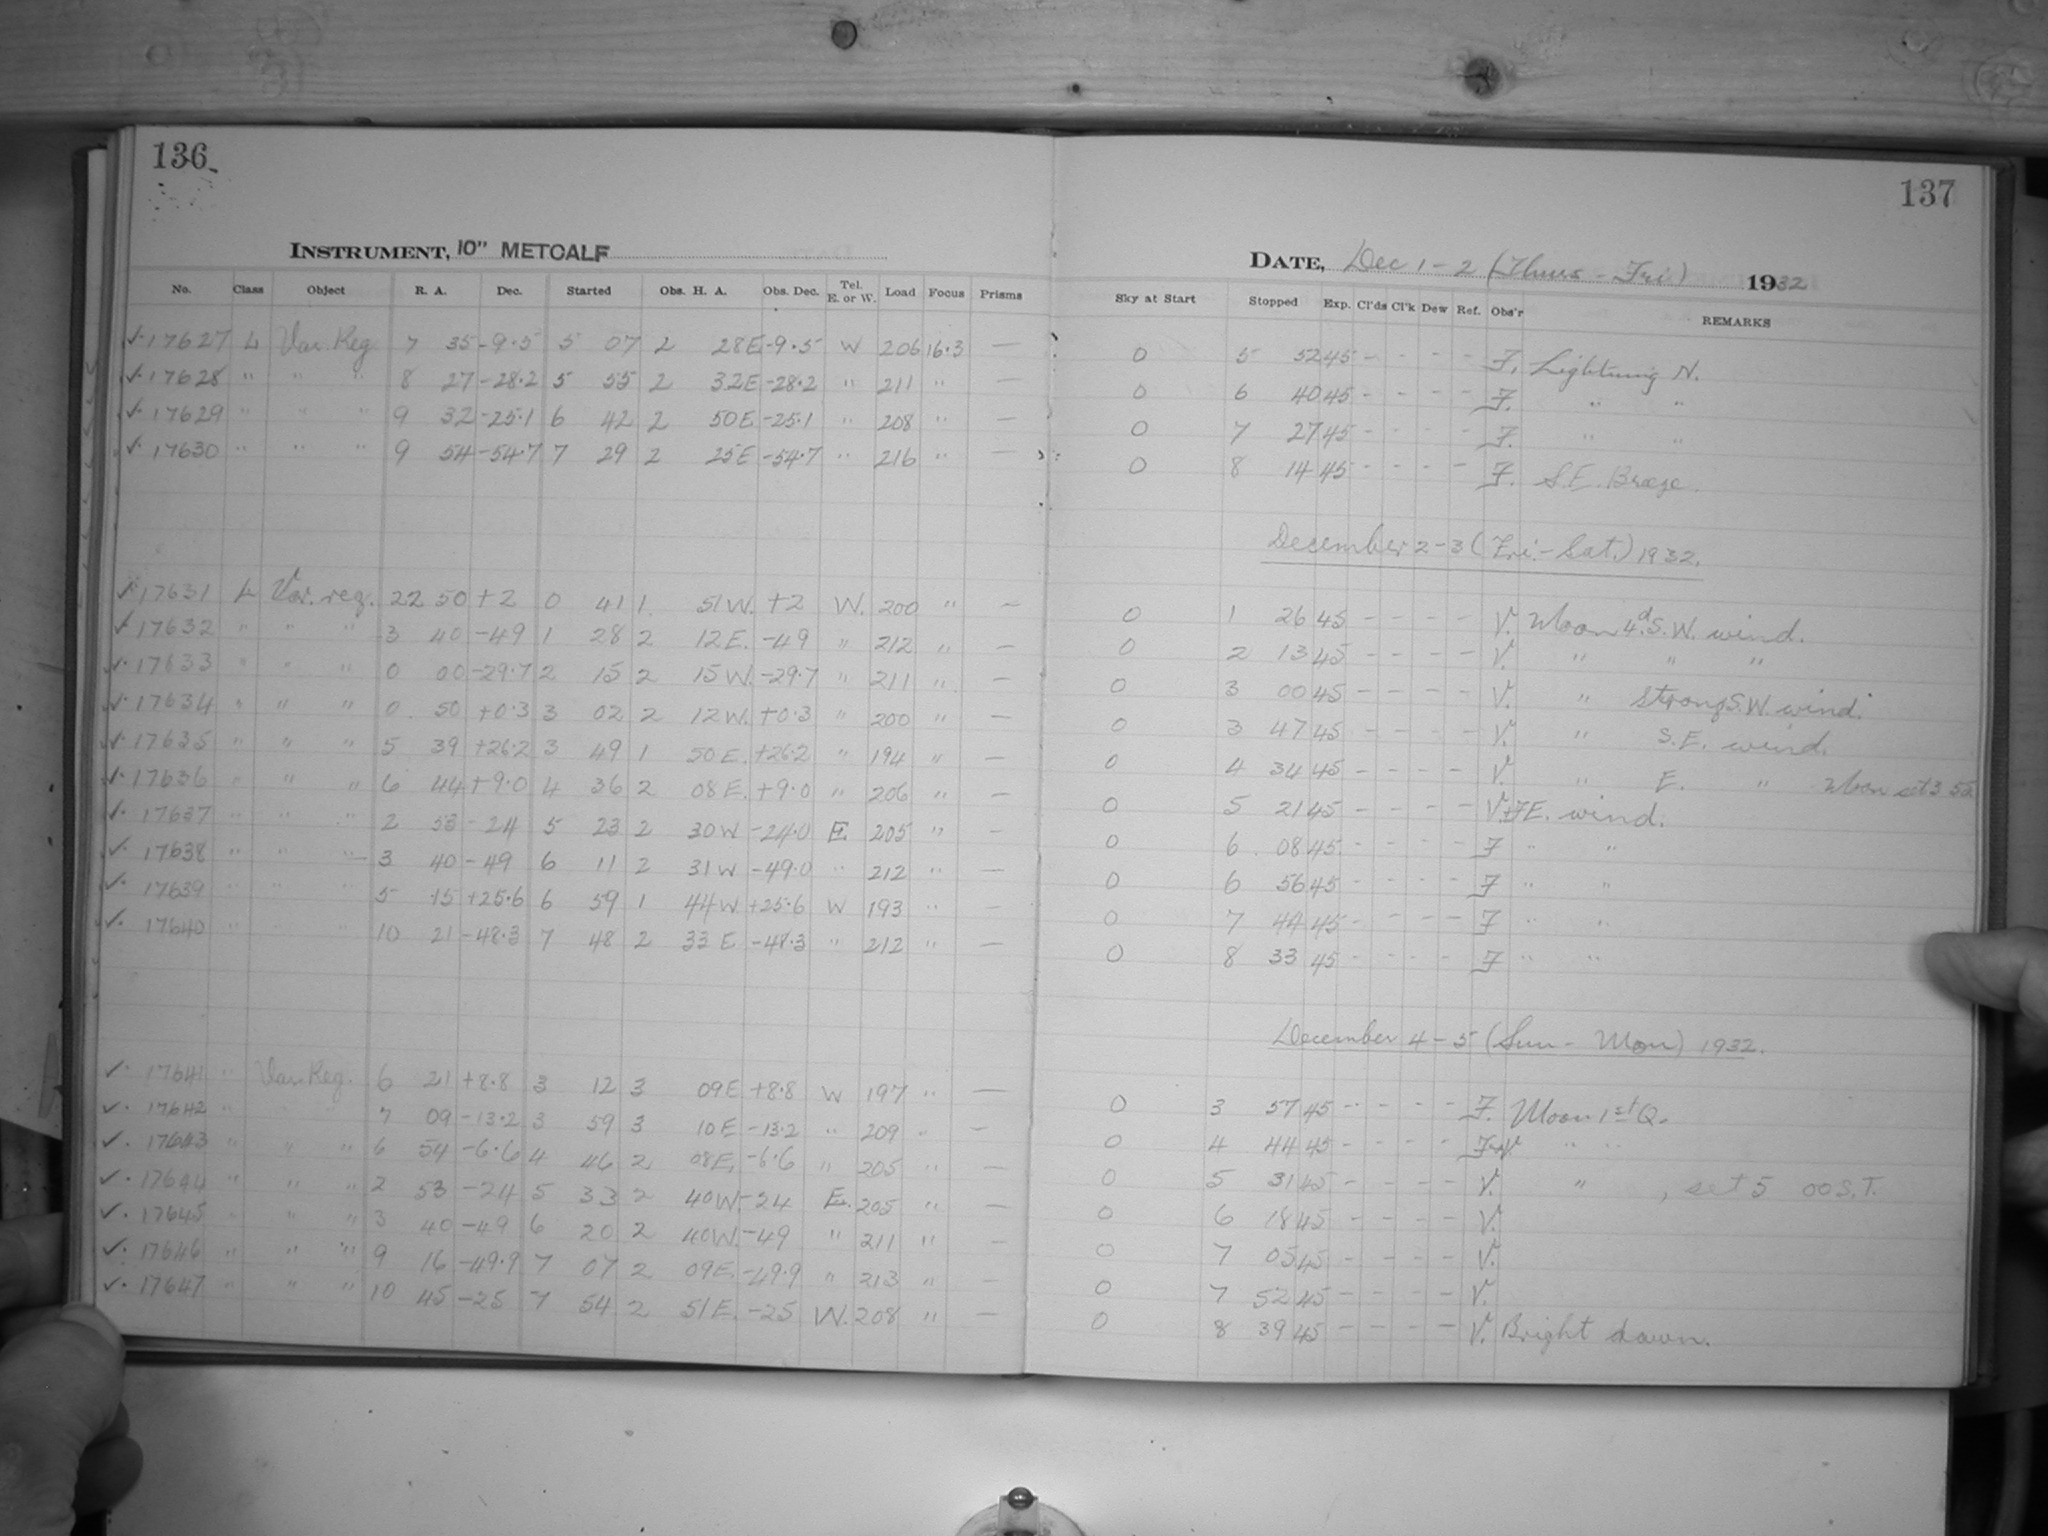 136
137
INSTRUMENT, 10" METCALF
DATE, Dec 1-2 (Thurs - Fri) 1932
No. Class Object R. A. Dec. Started Obs. H. A. Obs. Dec. Tel. E. or W. Load Focus Prisms Sky at Start Stopped Exp. Cl'ds Cl'k Dew Ref. Obs'r REMARKS
✓·17627 L Var. Reg. 7 35 -9.5 5 07 2 28E -9.5 W 206 16.3 — 0 5 52 45 - - - - F. Lightning N.
✓·17628 " " " 8 27 -28.2 5 55 2 32E -28.2 " 211 " — 0 6 40 45 - - - - F. " "
✓·17629 " " " 9 32 -25.1 6 42 2 50E -25.1 " 208 " — 0 7 27 45 - - - - F. " "
✓·17630 " " " 9 54 -54.7 7 29 2 25E -54.7 " 216 " — 0 8 14 45 - - - - F. S.E. Breeze.
December 2-3 (Fri.-Sat.) 1932.
✓·17631 L Var. reg. 22 50 +2 0 41 1 51W. +2 W. 200 " — 0 1 26 45 - - - - V. Moon 4d. S.W. wind.
✓·17632 " " " 3 40 -49 1 28 2 12E. -49 " 212 " — 0 2 13 45 - - - - V. " " "
✓·17633 " " " 0 00 -29.7 2 15 2 15W. -29.7 " 211 " — 0 3 00 45 - - - - V. " Strong S.W. wind.
✓·17634 " " " 0 50 +0.3 3 02 2 12W. +0.3 " 200 " — 0 3 47 45 - - - - V. " S.E. wind.
✓·17635 " " " 5 39 +26.2 3 49 1 50E. +26.2 " 194 " — 0 4 34 45 - - - - V. " E. " Moon set 3 55
✓·17636 " " " 6 44 +9.0 4 36 2 08E. +9.0 " 206 " — 0 5 21 45 - - - - V.F E. wind.
✓·17637 " " " 2 53 -24 5 23 2 30W -24.0 E 205 " — 0 6 08 45 - - - - F " "
✓·17638 " " " 3 40 -49 6 11 2 31W -49.0 " 212 " — 0 6 56 45 - - - - F " "
✓·17639 " " " 5 15 +25.6 6 59 1 44W +25.6 W 193 " — 0 7 44 45 - - - - F " "
✓·17640 " " " 10 21 -48.3 7 48 2 33E -48.3 " 212 " — 0 8 33 45 - - - - F " "
December 4-5 (Sun - Mon) 1932.
✓·17641 " Var. Reg. 6 21 +8.8 3 12 3 09E +8.8 W 197 " — 0 3 57 45 - - - - F. Moon 1st Q.
✓·17642 " " " 7 09 -13.2 3 59 3 10E -13.2 " 209 " — 0 4 44 45 - - - - F.V " "
✓·17643 " " " 6 54 -6.6 4 46 2 08E. -6.6 " 205 " — 0 5 31 45 - - - - V. " , set 5 00 S.T.
✓·17644 " " " 2 53 -24 5 33 2 40W. -24 E. 205 " — 0 6 18 45 - - - - V.
✓·17645 " " " 3 40 -49 6 20 2 40W. -49 " 211 " — 0 7 05 45 - - - - V.
✓·17646 " " " 9 16 -49.9 7 07 2 09E. -49.9 " 213 " — 0 7 52 45 - - - - V.
✓·17647 " " " 10 45 -25 7 54 2 51E. -25 W. 208 " — 0 8 39 45 - - - - V. Bright dawn.